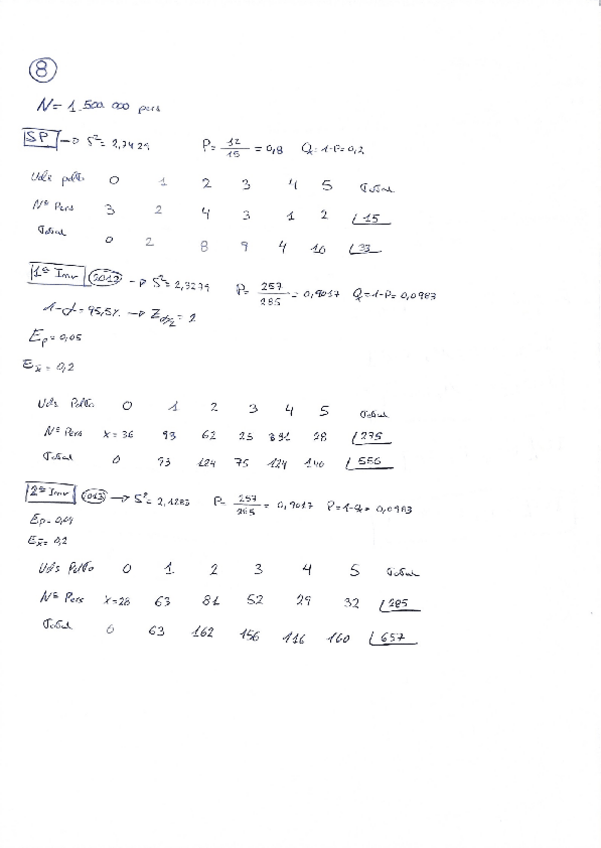 8
N = 1.500.000 pers
SP → S² = 2,7429 P = 12/15 = 0,8 Q = 1-P = 0,2
Uds pollo 0 1 2 3 4 5 Total
Nº Pers 3 2 4 3 1 2 15
Total 0 2 8 9 4 10 33
1ª Inv 2012 → S² = 2,3279 P = 257/285 = 0,9017 Q = 1-P = 0,0983
1-α = 95,5% → Zα/2 = 2
Ep = 0,05
Ex̄ = 0,2
Uds Pollo 0 1 2 3 4 5 Total
Nº Pers x = 36 93 62 25 31 28 275
Total 0 93 124 75 124 140 556
2ª Inv 2013 → S² = 2,1283 P = 257/285 = 0,9017 P = 1-Q = 0,0983
Ep = 0,04
Ex̄ = 0,2
Uds Pollo 0 1 2 3 4 5 Total
Nº Pers x = 28 63 81 52 29 32 285
Total 0 63 162 156 116 160 657